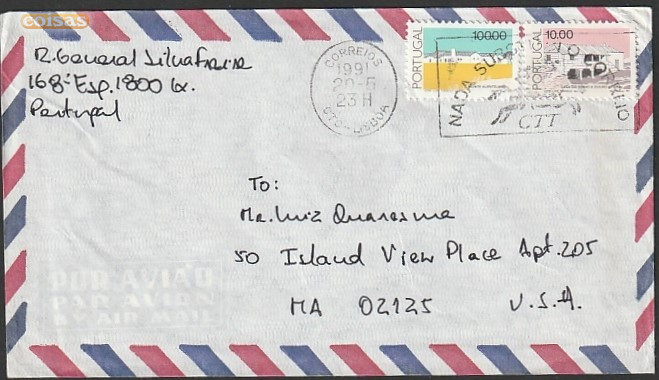 coisas
R. General Silva Freire
168-Esp. 1800 Lx.
Portugal
CORREIOS
1991
20-5
23H
CTC-LISBOA
PORTUGAL
100.00
PORTUGAL
10.00
NADA SUBSTITUI O
CTT
To:
Mr. Luiz Quaresma
50 Island View Place Apt. 205
MA 02125 U.S.A.
POR AVIÃO
PAR AVION
BY AIR MAIL